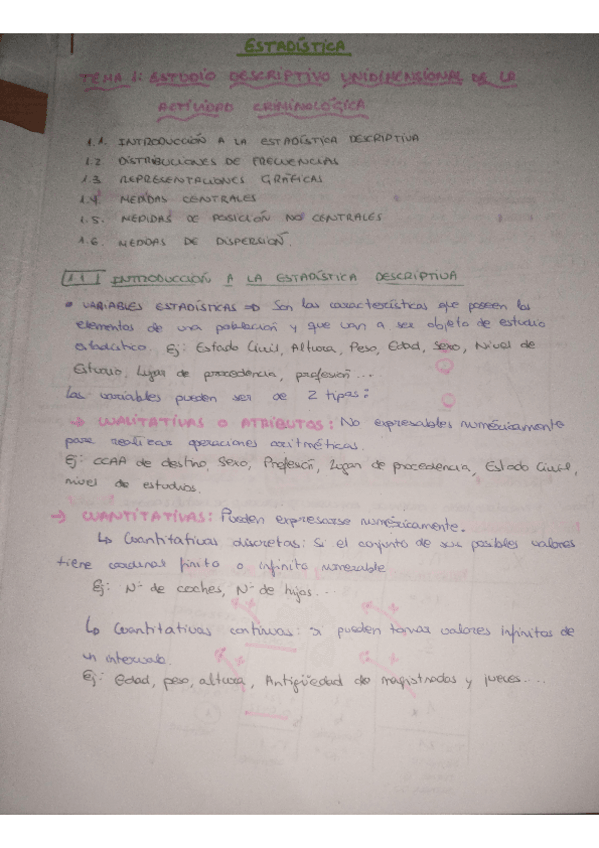 ESTADÍSTICA
TEMA 1: ESTUDIO DESCRIPTIVO UNIDIMENSIONAL DE LA
ACTIVIDAD CRIMINOLÓGICA
1.1. INTRODUCCIÓN A LA ESTADÍSTICA DESCRIPTIVA
1.2 DISTRIBUCIONES DE FRECUENCIAS
1.3 REPRESENTACIONES GRÁFICAS
1.4 MEDIDAS CENTRALES
1.5. MEDIDAS DE POSICIÓN NO CENTRALES
1.6. MEDIDAS DE DISPERSIÓN.
1.1 INTRODUCCIÓN A LA ESTADÍSTICA DESCRIPTIVA
• VARIABLES ESTADÍSTICAS => Son las características que poseen los
elementos de una población y que van a ser objeto de estudio
estadístico. Ej: Estado Civil, Altura, Peso, Edad, Sexo, Nivel de
Estudio, Lugar de procedencia, profesión...
Las variables pueden ser de 2 tipos:
→ CUALITATIVAS O ATRIBUTOS: No expresables numéricamente
para realizar operaciones aritméticas.
Ej: CCAA de destino, Sexo, Profesión, Lugar de procedencia, Estado Civil,
nivel de estudios.
→ CUANTITATIVAS: Pueden expresarse numéricamente.
↳ Cuantitativas discretas: Si el conjunto de sus posibles valores
tiene cardinal finito o infinito numerable
Ej: Nº de coches, Nº de hijos...
↳ Cuantitativas continuas: si pueden tomar valores infinitos de
un intervalo.
Ej: Edad, peso, altura, Antigüedad de magistrados y jueces....